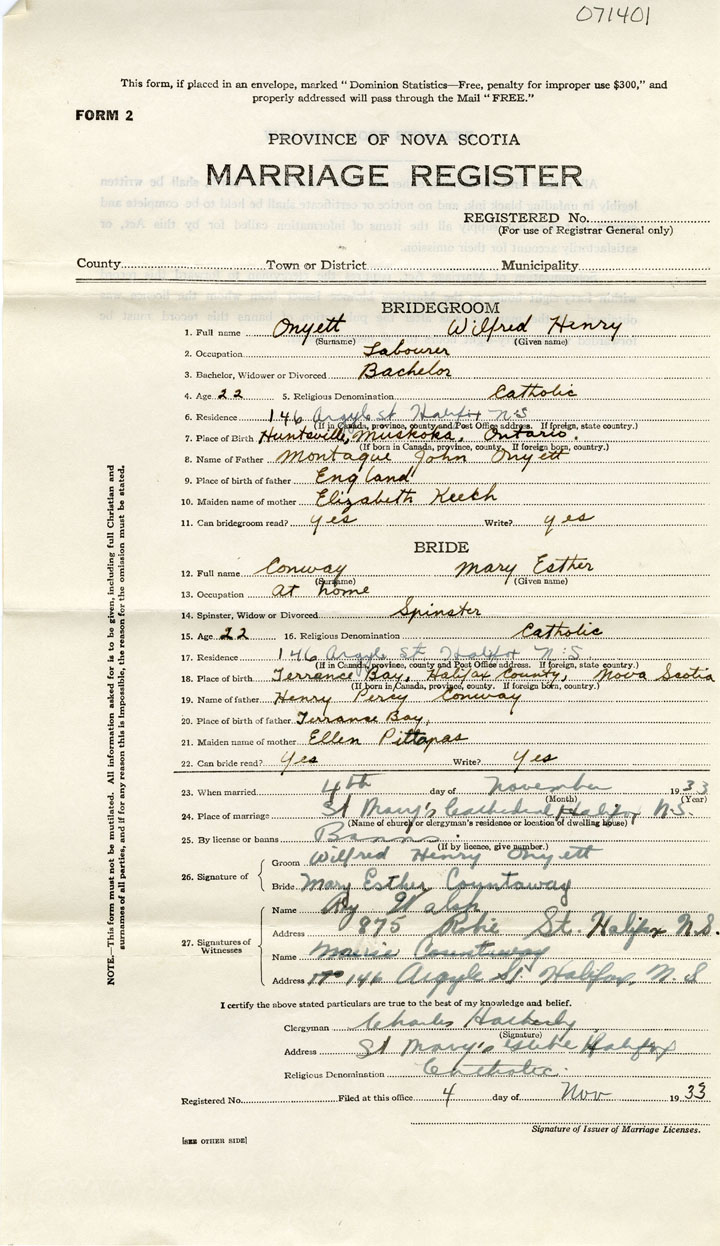 071401
This form, if placed in an envelope, marked "Dominion Statistics—Free, penalty for improper use $300," and
properly addressed will pass through the Mail "FREE."
FORM 2
PROVINCE OF NOVA SCOTIA
MARRIAGE REGISTER
REGISTERED No.
(For use of Registrar General only)
County Town or District Municipality
BRIDEGROOM
1. Full name Onyett Wilfred Henry
(Surname) (Given name)
2. Occupation Labourer
3. Bachelor, Widower or Divorced Bachelor
4. Age 22 5. Religious Denomination Catholic
6. Residence 146 Argyle St Halifax N.S
(If in Canada, province, county and Post Office address. If foreign, state country.)
7. Place of Birth Huntsville, Muskoka, Ontario.
(If born in Canada, province, county. If foreign born, country.)
8. Name of Father Montague John Onyett
9. Place of birth of father England
10. Maiden name of mother Elizabeth Keech
11. Can bridegroom read? yes Write? yes
BRIDE
12. Full name Conway Mary Esther
(Surname) (Given name)
13. Occupation at home
14. Spinster, Widow or Divorced Spinster
15. Age 22 16. Religious Denomination Catholic
17. Residence 146 Argyle St. Halifax N.S.
(If in Canada, province, county and Post Office address. If foreign, state country.)
18. Place of birth Terrance Bay, Halifax County, Nova Scotia
(If born in Canada, province, county. If foreign born, country.)
19. Name of father Henry Percy Conway
20. Place of birth of father Terrance Bay,
21. Maiden name of mother Ellen
22. Can bride read? Yes Write? Yes
23. When married 4th day of November 1933
(Month) (Year)
24. Place of marriage St Mary's Cathedral Halifax N.S.
(Name of church or clergyman's residence or location of dwelling house)
25. By license or banns Banns
(If by licence, give number.)
26. Signature of
Groom Wilfred Henry Onyett
Bride Mary Esther Countaway
27. Signatures of Witnesses
Name Walsh
Address 875 Robie St. Halifax N.S.
Name Marie Countaway
Address 146 Argyle St Halifax, N.S
I certify the above stated particulars are true to the best of my knowledge and belief.
Clergyman Charles
(Signature)
Address St Mary's Halifax
Religious Denomination Catholic.
Registered No. Filed at this office 4 day of Nov 1933
Signature of Issuer of Marriage Licenses.
[SEE OTHER SIDE]
NOTE.—This form must not be mutilated. All information asked for is to be given, including full Christian and
surnames of all parties, and if for any reason this is impossible, the reason for the omission must be stated.